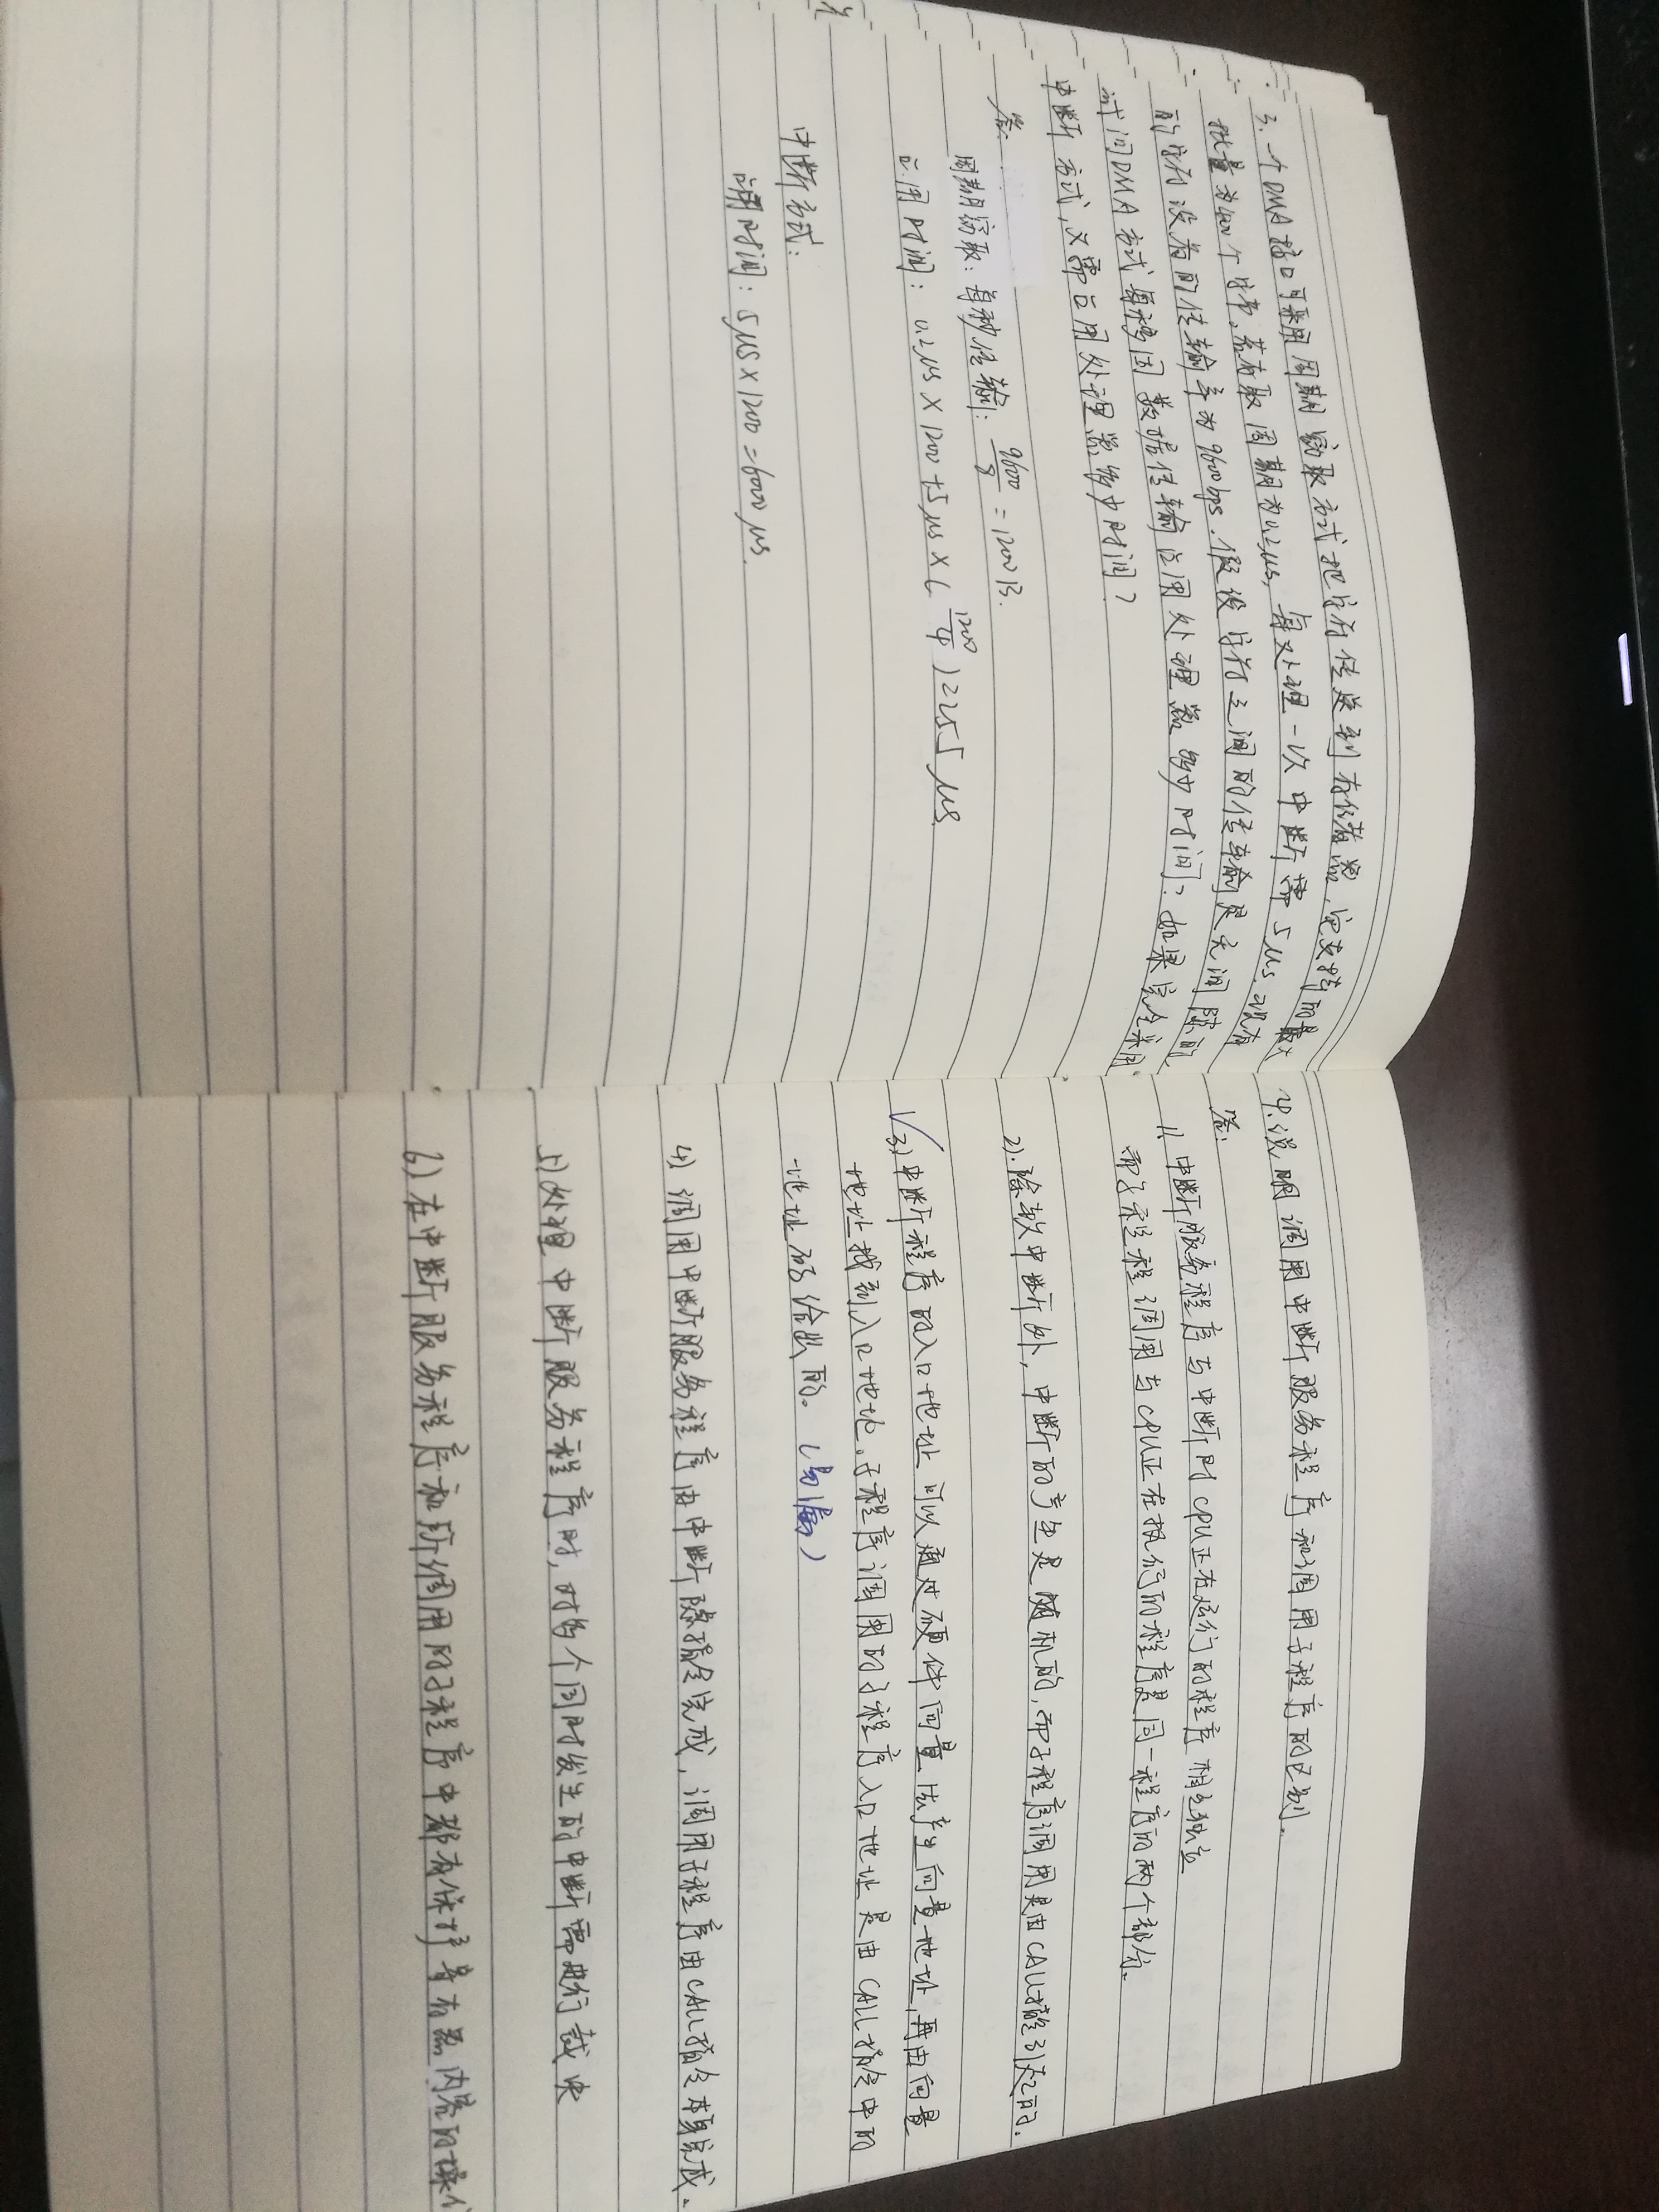 3. 一个DMA接口可采用周期窃取方式把字符传送到存储器,它支持的最大
批量为400个字节,若存取周期为0.2μs,每处理一次中断需5μs,现有
的字符设备的传输率为9600bps.假设字符之间的传输是无间隙的,
试问DMA方式每秒因数据传输占用处理器多少时间?如果完全采用
中断方式,又需占用处理器多少时间?
答:
周期窃取:每秒传输: 9600/8 = 1200B.
占用时间: 0.2μs × 1200 + 5μs × ( 1200/4 ) = 255μs
中断方式:
占用时间: 5μs × 1200 = 6000μs.
4.说明调用中断服务程序和调用子程序的区别.
答:
1). 中断服务程序与中断时CPU正在运行的程序相互独立
而子程序调用与CPU正在执行的程序是同一程序的两个部分.
2). 除软中断外,中断的产生是随机的,而子程序调用是由CALL指令引起的.
√3)中断程序的入口地址可以通过硬件向量法产生向量地址,再由向量
地址找到入口地址.子程序调用的子程序入口地址是由CALL指令中的
地址码给出的。(易漏)
4) 调用中断服务程序由中断隐指令完成,调用子程序由CALL指令本身完成。
5)处理中断服务程序时,对多个同时发生的中断需进行裁决
6) 在中断服务程序和所调用的子程序中都有保护寄存器内容的操作